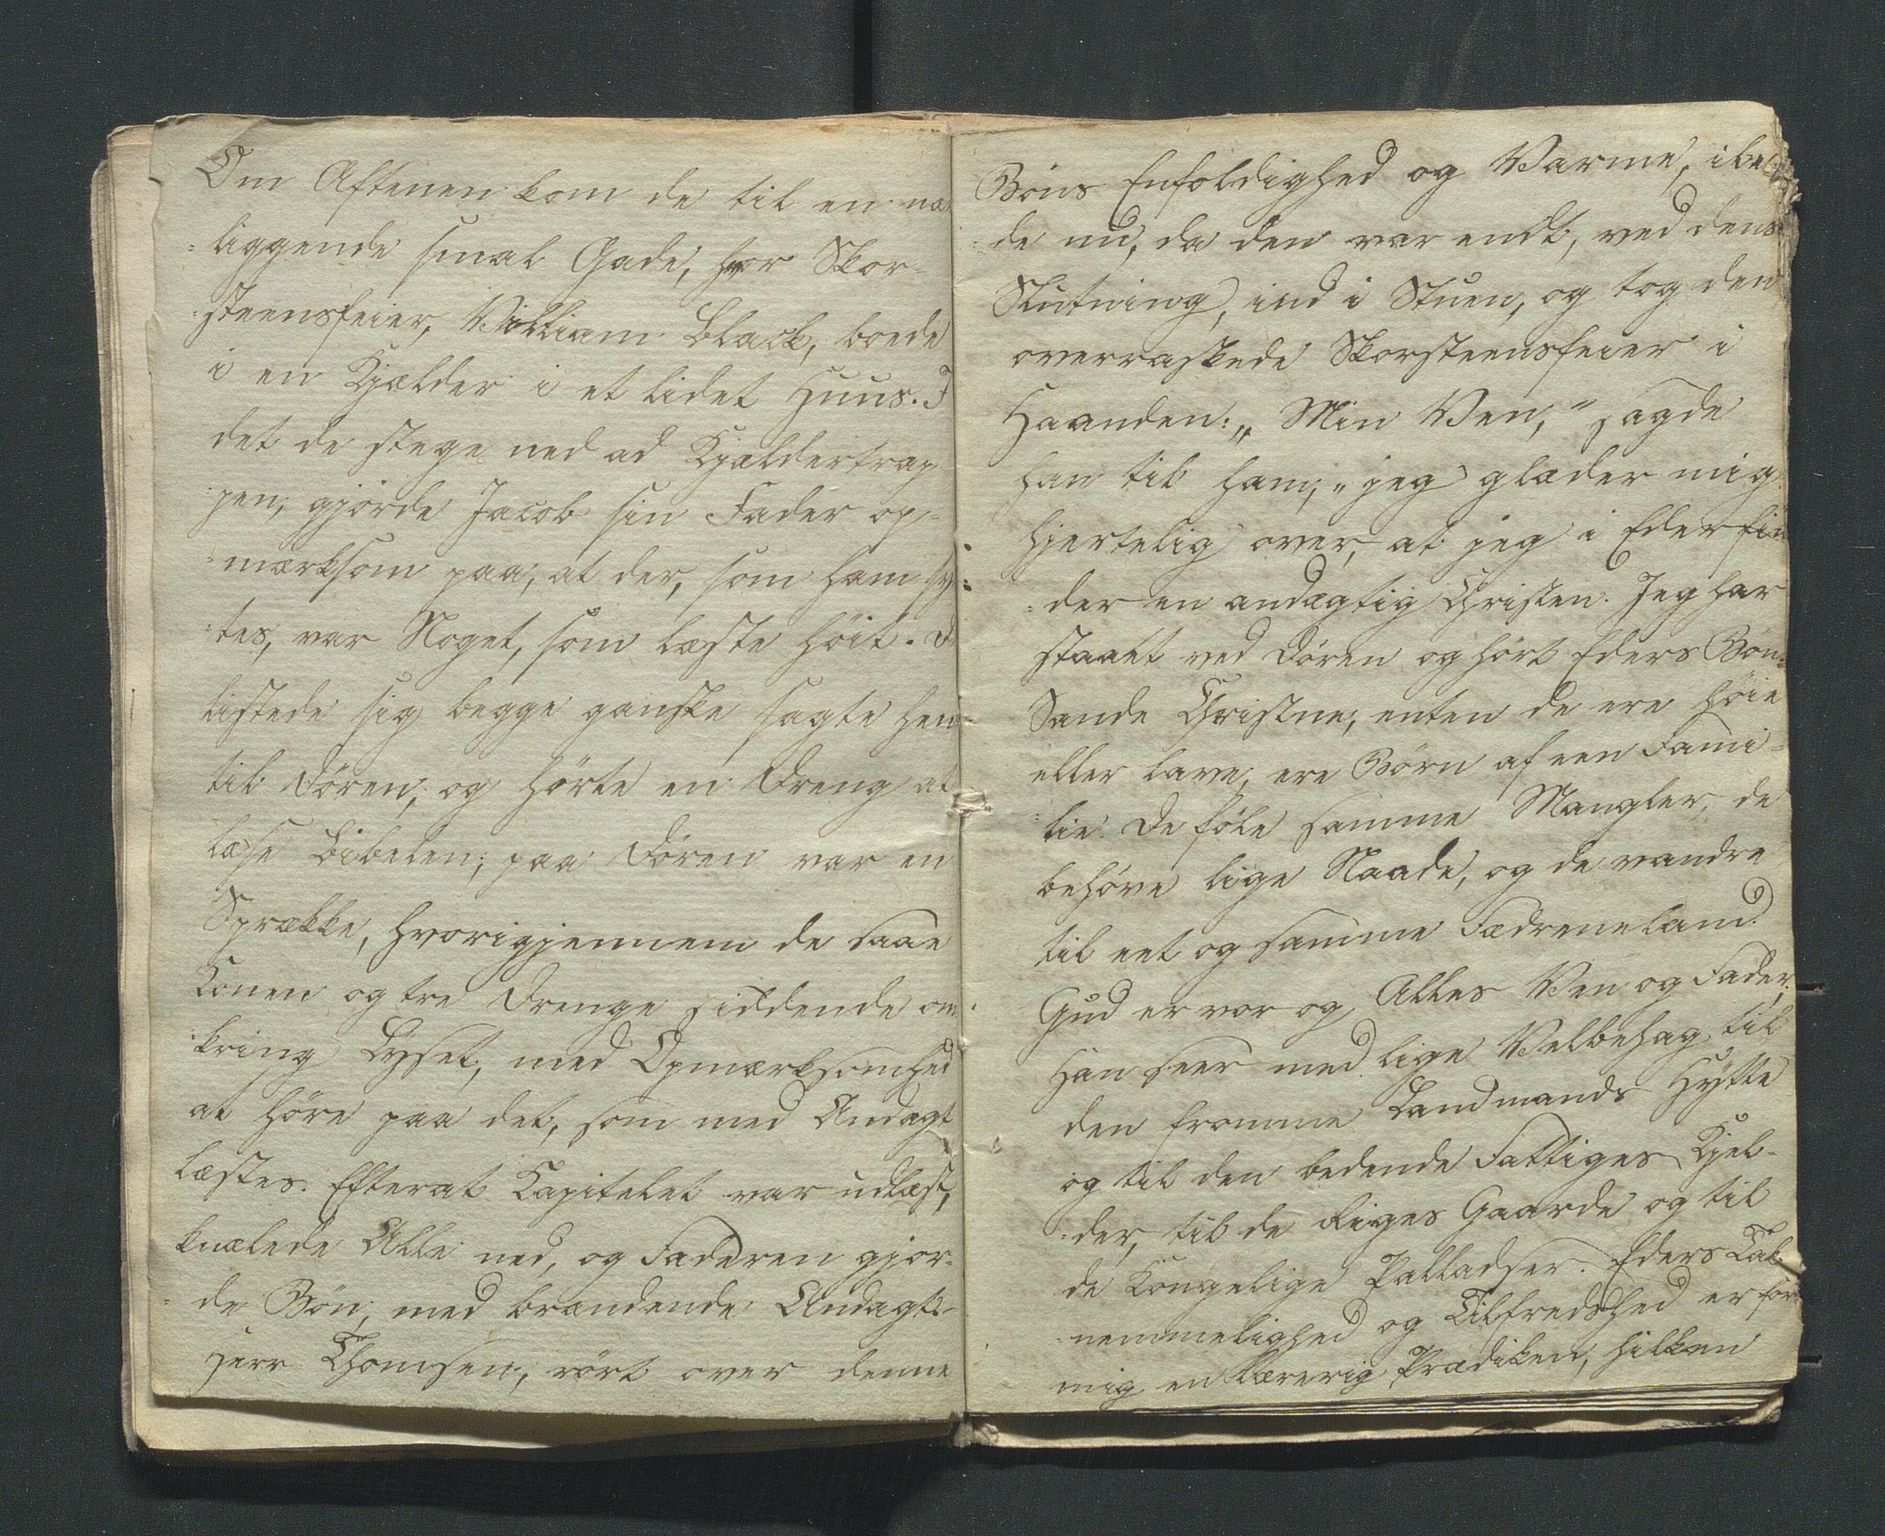 Om Aftenen kom de til en næ
liggende smal Gade, hvor Skor-
steensfeier, William Black, boede
i en Kjælder i et lidet Huus. I
det de stege ned ad Kjældertrap
pen, gjorde Jacob sin Fader op-
mærksom paa, at der, som ham syn
tes, var Noget, som læste höit. D
listede sig begge ganske sagte hen
til Dören, og hörte en Dreng at
læse Bibelen; paa Dören var en
Sprække, hvorigjennem de saae
Konen og tre Drenge siddende om
kring Lyset, med Opmærksomhed
at höre paa det, som med Andagt
læstes. Efterat Kapitelet var udlæst,
knælede Alle ned, og Faderen gjor-
de Bön, med brændende Andagt.
Herr Thomsen, rört over denne
Böns Enfoldighed og Varme,
de nu, da den var endt, ved dens
Slutning, ind i Stuen, og tog den
overraskede Skorsteensfeier i
Haanden: „Min Ven,” sagde
han til ham, „jeg glæder mig
hjertelig over, at jeg i Eder fin
der en andægtig Christen. Jeg har
staaet ved Dören og hört Eders Bön.
Sande Christne, enten de ere höie
eller lave, ere Börn af een Fami-
lie. De föle samme Mangler, de
behöve lige Naade, og de vandre
til eet og samme Fædreneland.
Gud er vor og Alles Ven og Fader,
Han seer med lige Velbehag til
den fromme Landmands Hytte
og til den bedende Fattiges Kjel-
der, til de Riges Gaarde og til
de Kongelige Palladser. Eders Tak
nemmelighed og Tilfredshed er for
mig en lærerig Prædiken, hilken